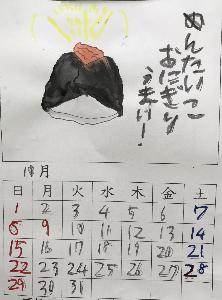 めんたいこ
おにぎり
うまい!
10月
日 月 火 水 木 金 土
1 2 3 4 5 6 7
8 9 10 11 12 13 14
15 16 17 18 19 20 21
22 23 24 25 26 27 28
29 30 31